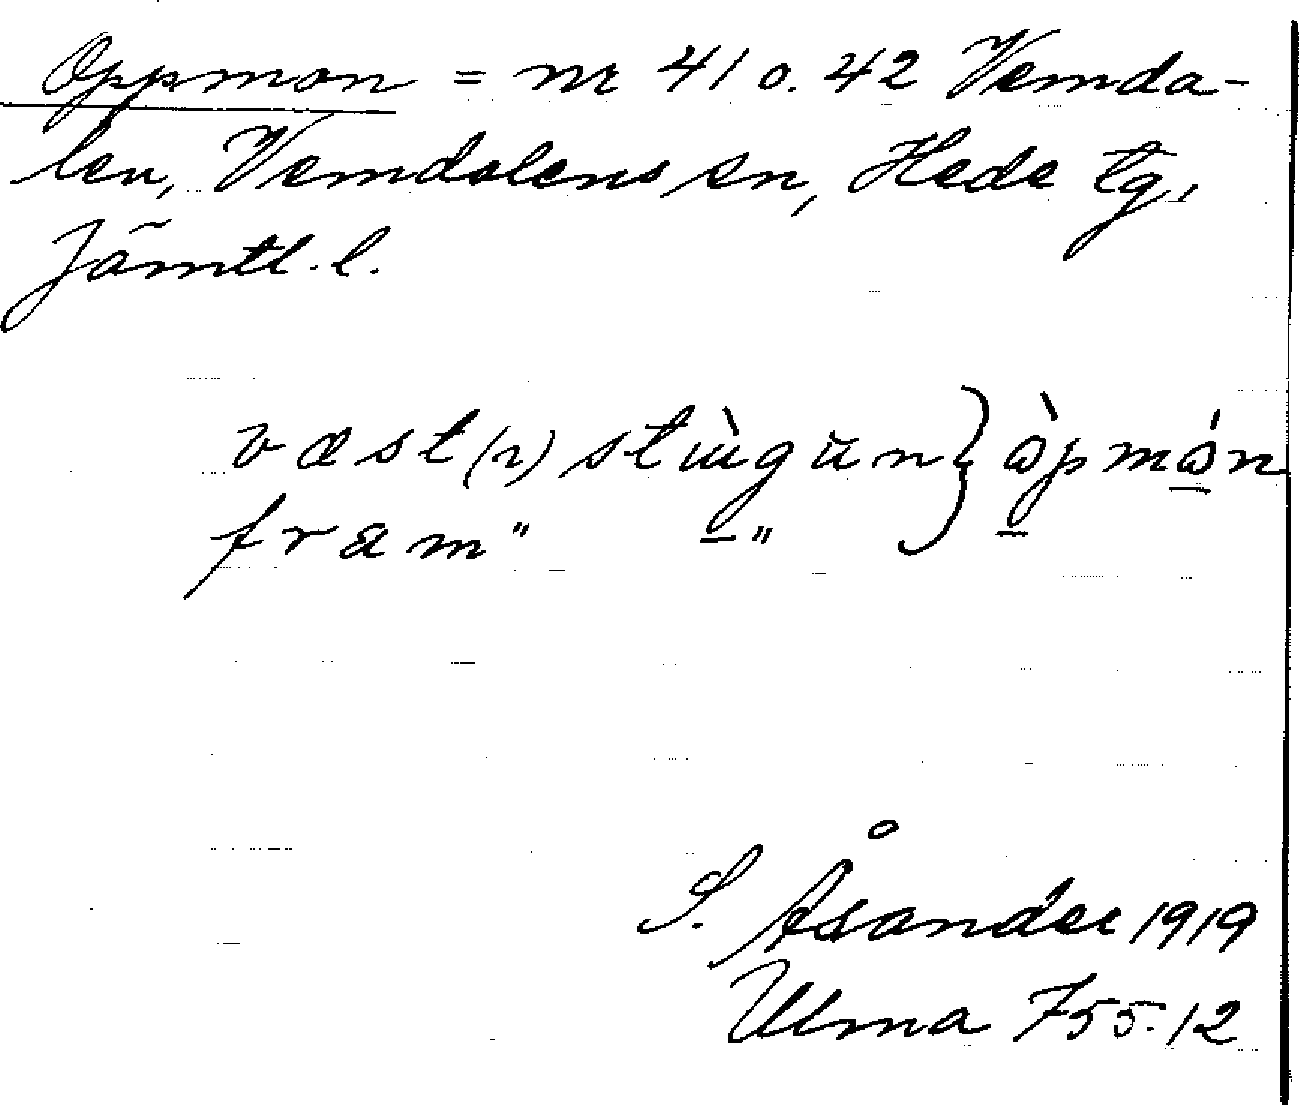 Oppmon = nr 41 o. 42 Vemda-
len, Vemdalens sn, Hede tg,
Jämtl. l.
væst(r) stùgun } òpmón
fram " – "
S. Åsander 1919
Ulma 755.12